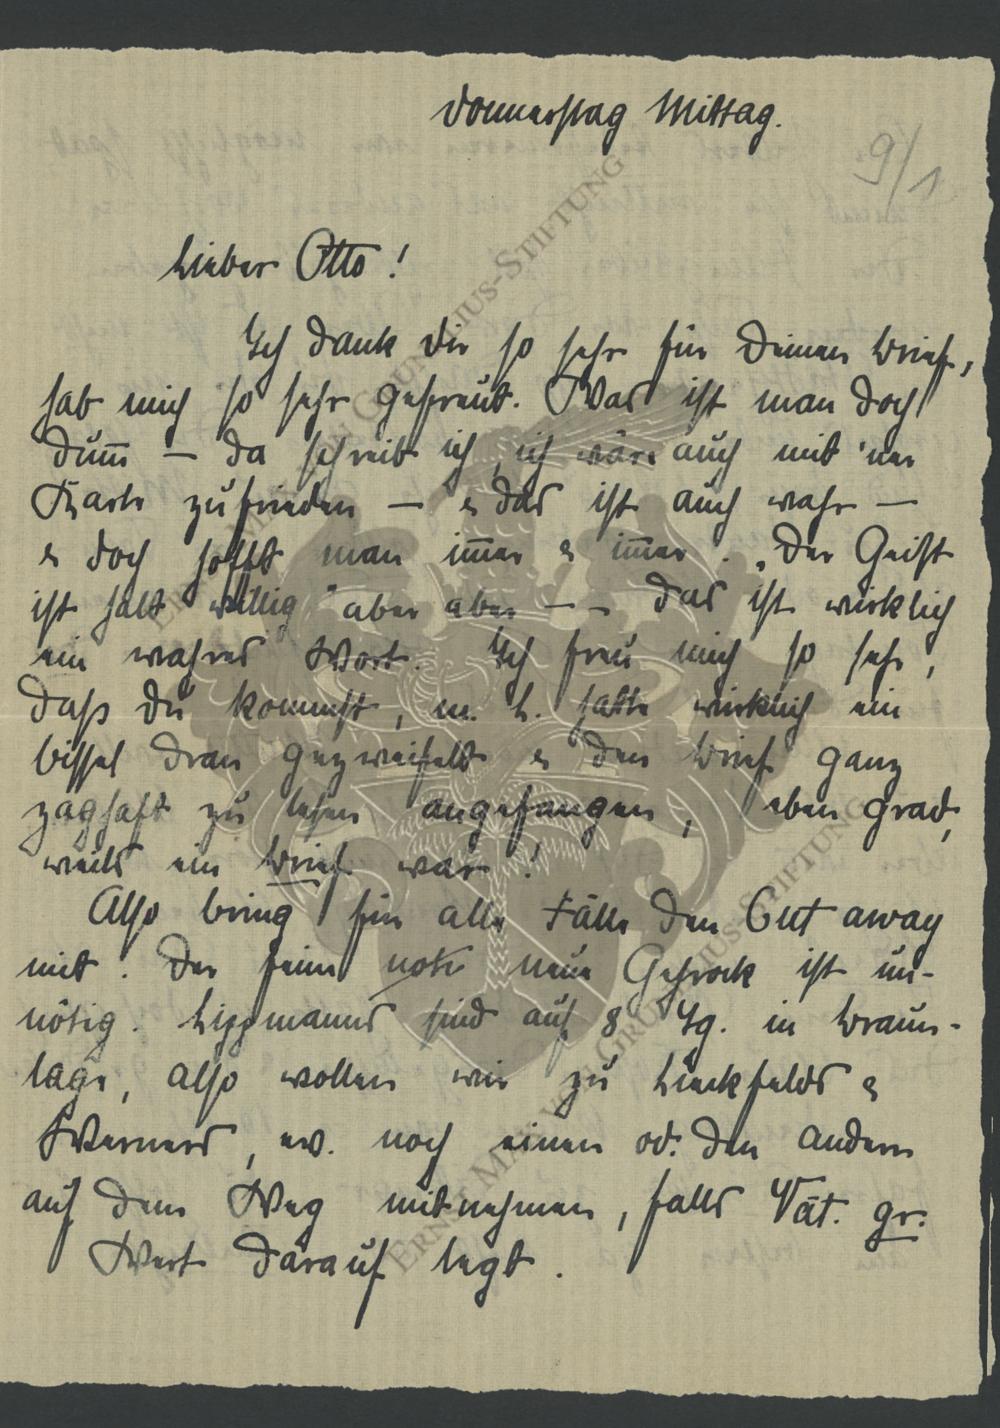 Donnerstag Mittag.
9/1
Lieber Otto!
Ich dank Dir so sehr für Deinen Brief,
hab mich so sehr gefreut. Was ist man doch
dum̅ – da schreib ich, ich wäre auch mit 'ner
Karte zufrieden – & das ist auch wahr –
& doch hofft man im̅er & im̅er. „Der Geist
ist halt willig" aber aber – – das ist wirklich
ein wahres Wort. Ich freu mich so sehr,
daß Du kommst, m. L. hatte wirklich ein
bissel dran gezweifelt & den Brief ganz
zaghaft zu lesen angefangen, eben grad,
weils ein Brief war!
Also bring für alle Fälle den Cut away
mit. Der feine neue Gehrock ist un-
nötig. Lippmanns sind auf 8 Tg. in Braun-
lage, also wollen wir zu Lueckfelds &
Werners, ev. noch einen od. den andern
auf dem Weg mitnehmen, falls Vat. gr.
Wert darauf legt.
ERNST MAX VON GRUNELIUS-STIFTUNG
ERNST MAX VON GRUNELIUS-STIFTUNG